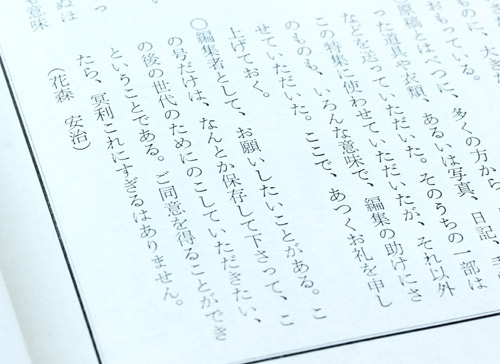 ものに、大き
おもっている。
原稿とはべつに、多くの方から、
った道具や衣類、あるいは写真、日記、手
などを送っていただいた。そのうちの一部は
この特集に使わせていただいたが、それ以外
のものも、いろんな意味で、編集の助けにさ
せていただいた。ここで、あつくお礼を申し
上げておく。
○編集者として、お願いしたいことがある。こ
の号だけは、なんとか保存して下さって、こ
の後の世代のためにのこしていただきたい、
ということである。ご同意を得ることができ
たら、冥利これにすぎるはありません。
（花森　安治）